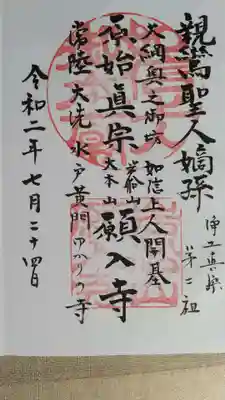 親鸞聖人嫡孫
浄土真宗
第二祖
大綱奥之御坊 如信上人開基
原始眞宗
岩船山
大本山
願入寺
常陸大洗水戸黄門ゆかりの寺
令和二年七月二十四日